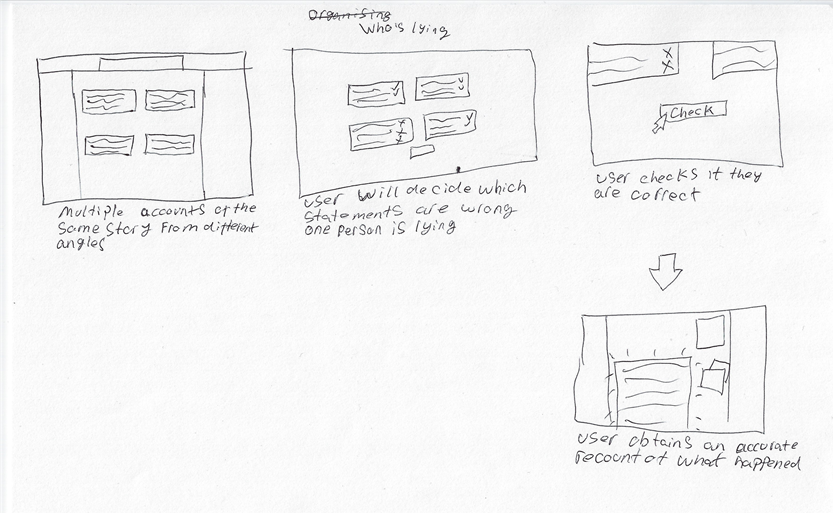 Organising
Who's lying
Multiple accounts of the
Same Story From different
angles
user will decide which
Statements are wrong
one person is lying
Check
user checks if they
are correct
user obtains an accurate
recount of what happened